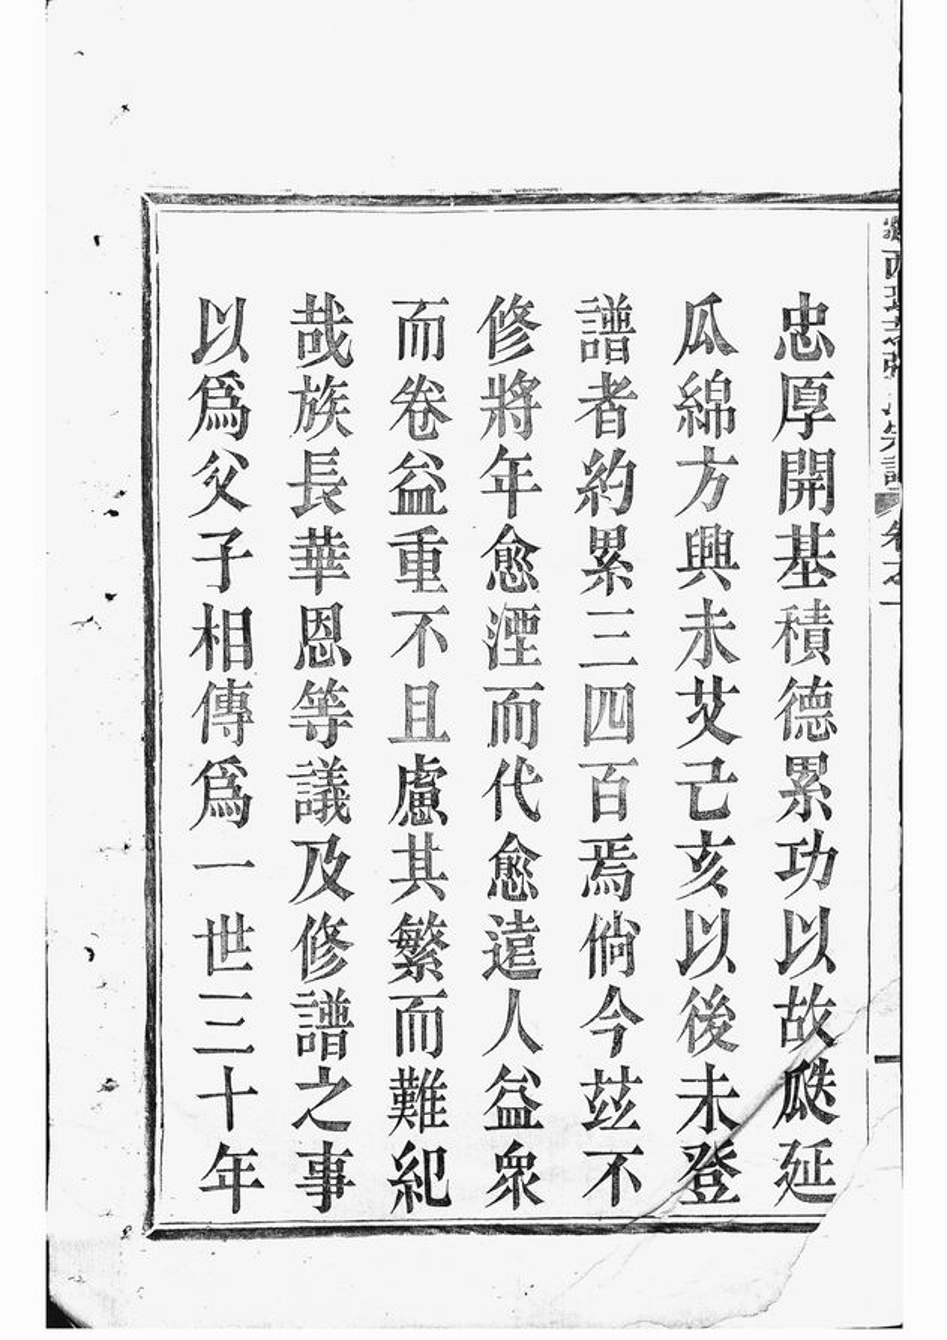 忠厚開基積德累功以故瓞延
瓜綿方興未艾己亥以後未登
譜者約累三四百焉倘今茲不
修將年愈湮而代愈遠人益衆
而卷益重不且慮其繁而難紀
哉族長華恩等議及修譜之事
以爲父子相傳爲一世三十年